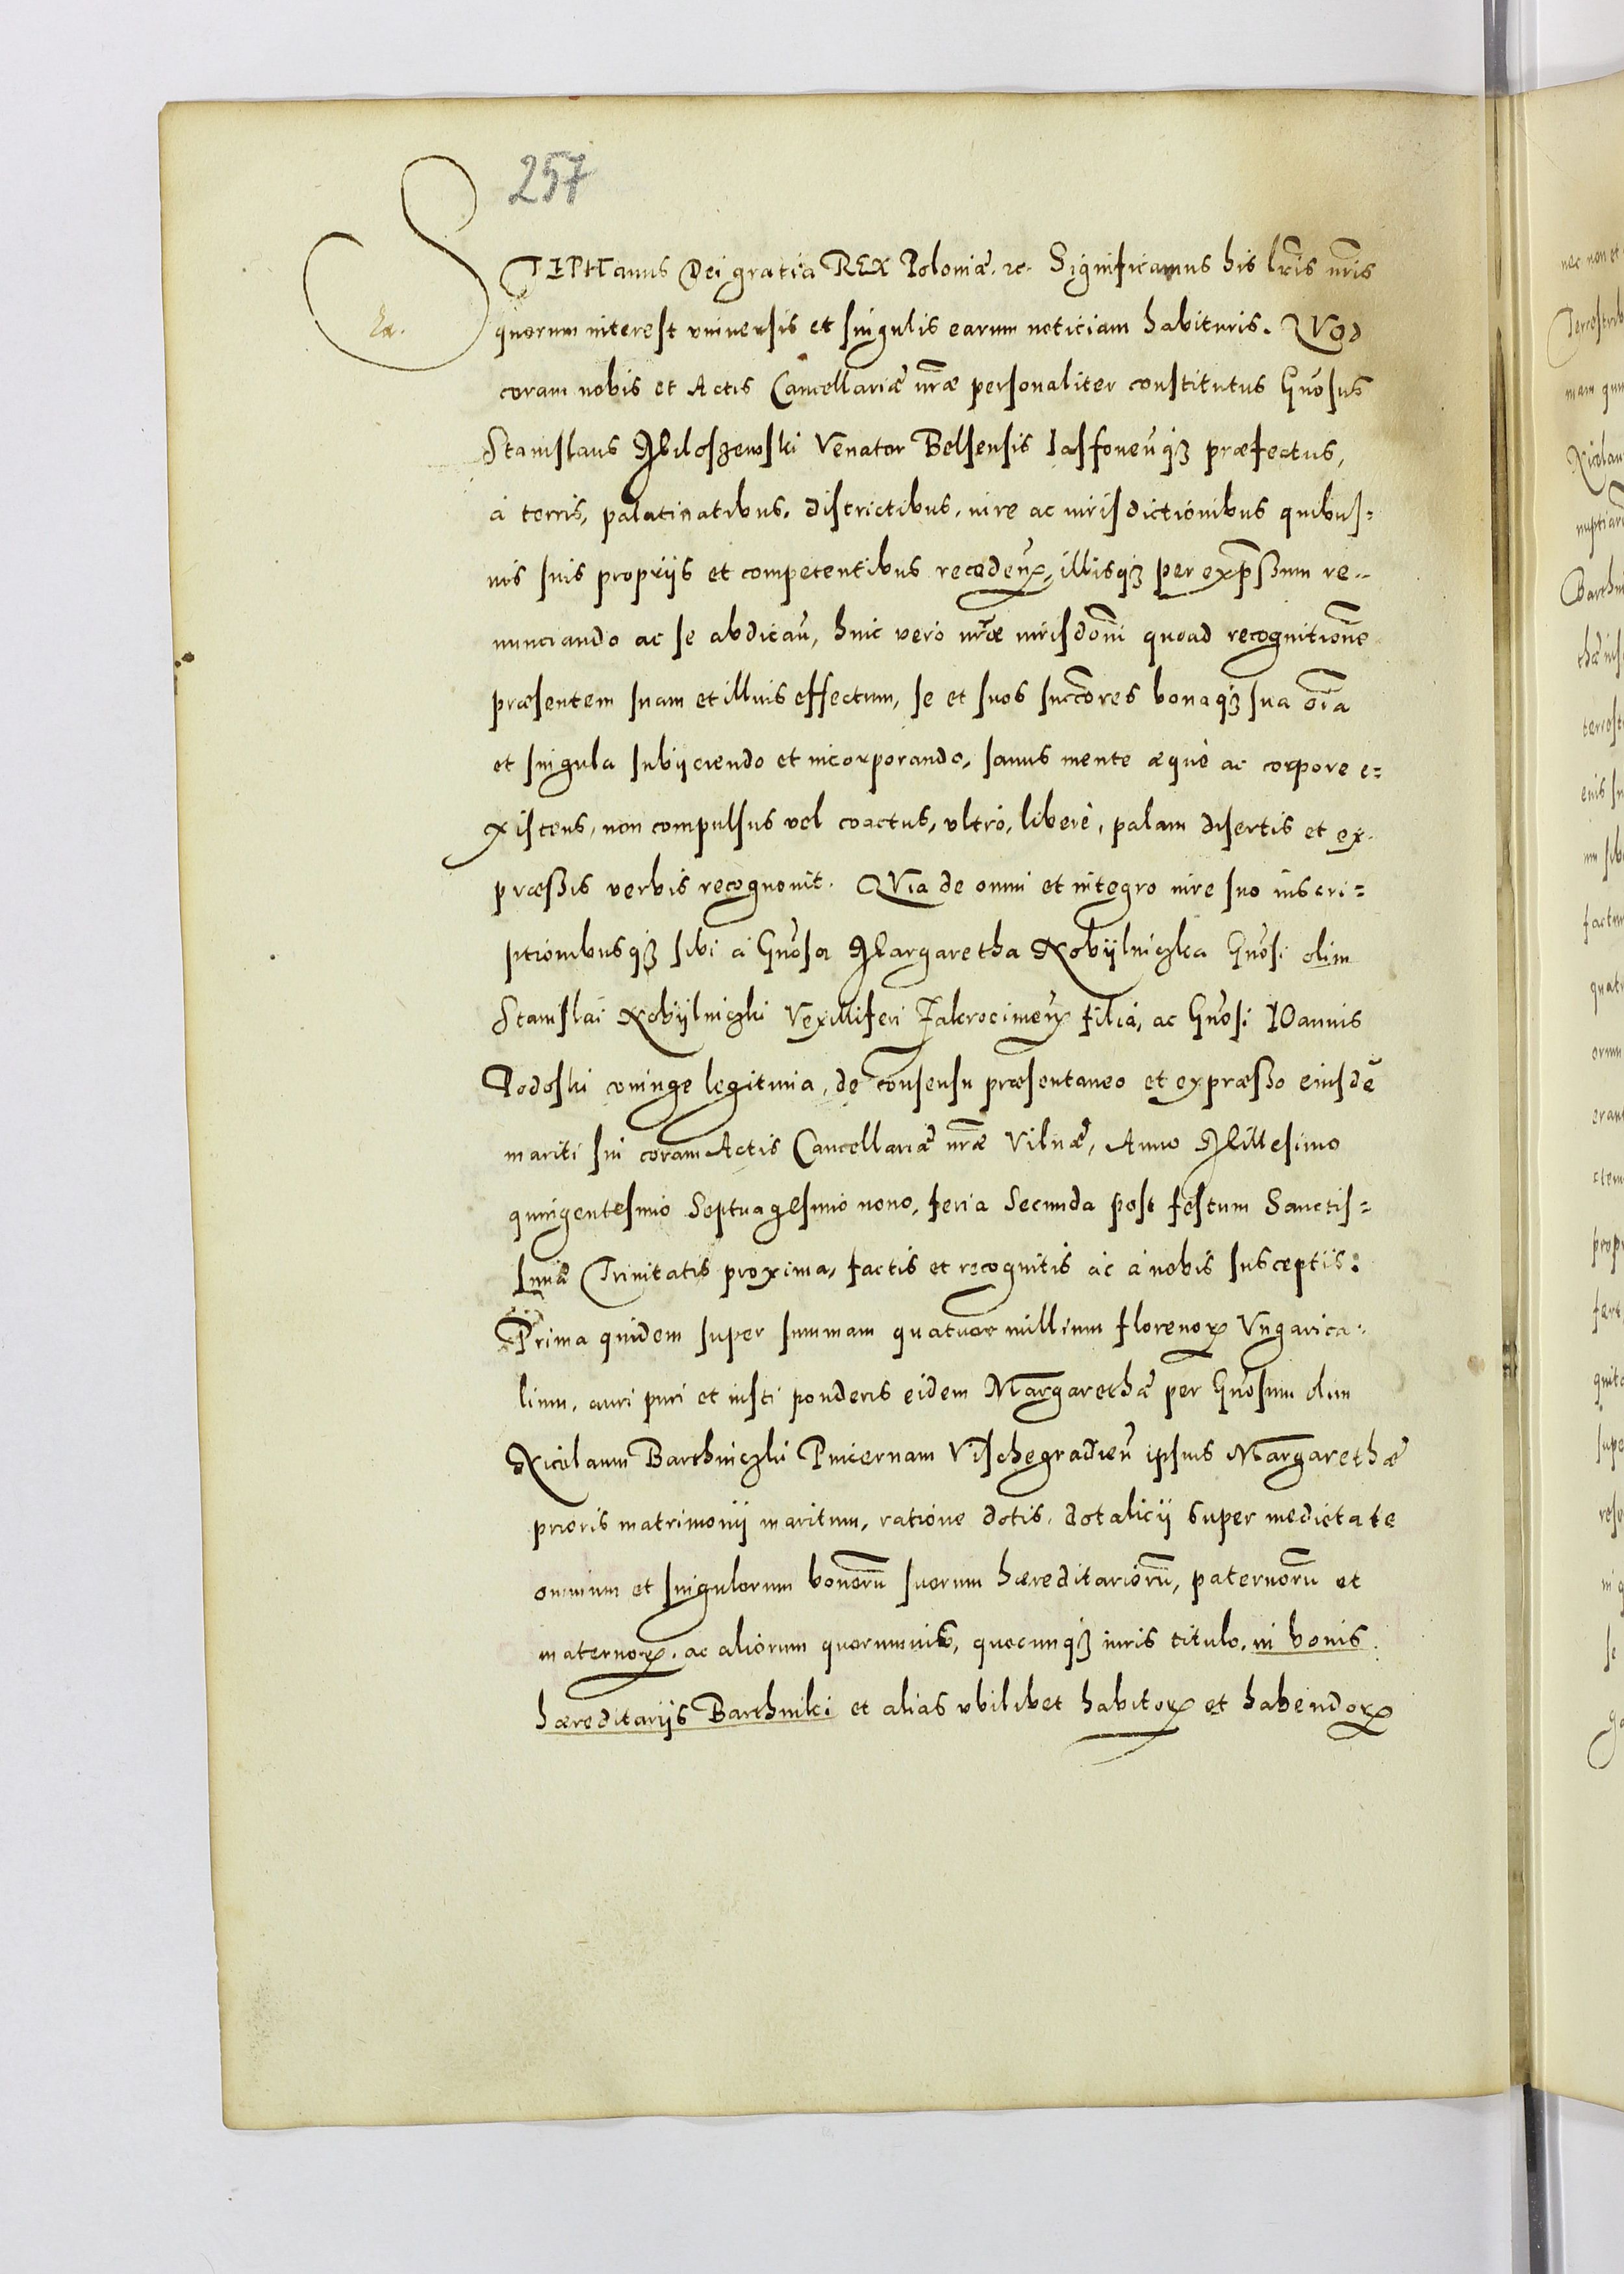 257
STEPHanus Dei gratia REX Poloniæ. ꝛc. Significamus his lr̃is nr̃is
quorum interest vniuersis et singulis earum noticiam habituris. QVod
coram nobis et Actis Cancellariæ nr̃æ personaliter constitutus Gñosus
Stanislaus Miloszewski Venator Belsensis qꝫ præfectus,
à terris, palatinatibus, districtibus, iure ac iurisdictionibus quibus=
uis suis proprijs et competentibus recedeñ, illisqꝫ per exp̃ssum re=
nunciando ac se abdicañ, huic verò nr̃æ iurisdoñi quoad recognitionẽ
præsentem suam et illius effectum, se et suos succõres bonaqꝫ sua oĩa
et singula subijciendo et incorporando, sanus mente æquè ac corpore e=
xistens, non compulsus vel coactus, vltrò, liberè, palam disertis et ex=
præssis verbis recognouit. QVia de omni et integro iure suo inscri=
ptionibusqꝫ sibi à Gñosa Margaretha Nobijlniczka Gñosi olim
Stanislai Nobijlniczki Vexilliferi Zakrocimeñ filia, ac Gñosi IOannis
Podoski coniuge legitima, de consensu præsentaneo et expræsso eiusdẽ
mariti sui coram Actis Cancellariæ nr̃æ Vilnæ, Anno Millesimo
quingentesimo Septuagesimo nono, feria Secunda post festum Sanctis=
simæ Trinitatis proxima, factis et recognitis ac à nobis susceptis:
Prima quidem super summam quatuor millium florenoꝝ Vngarica=
lium, auri puri et iusti ponderis eidem Margarethæ per Gñosum olim
Nicolaum Barthniczki Pincernam Vischegradieñ ipsius Margarethæ
prioris matrimonij maritum, ratione dotis, dotalicij super medietate
omnium et singulorum bonorũ suorum hæreditariorũ, paternorũ et
maternoꝝ, ac aliorum quorumuis, quocunqꝫ iuris titulo, in bonis
hæreditarijs Barthniki et alias vbilibet habitoꝝ et habendoꝝ